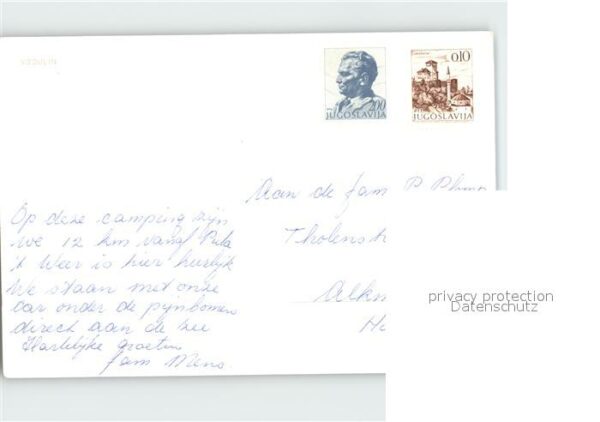 MEDULIN
2.00
JUGOSLAVIJA
0.10
JUGOSLAVIJA
Aan de fam P
Tholenst
Alkm
Op deze camping zijn
we 12 km vanaf Pula
't Weer is hier heerlijk
We staan met onze
car onder de pijnbomen
direct aan de zee
Hartelijke groeten
fam Mens
privacy protection
Datenschutz